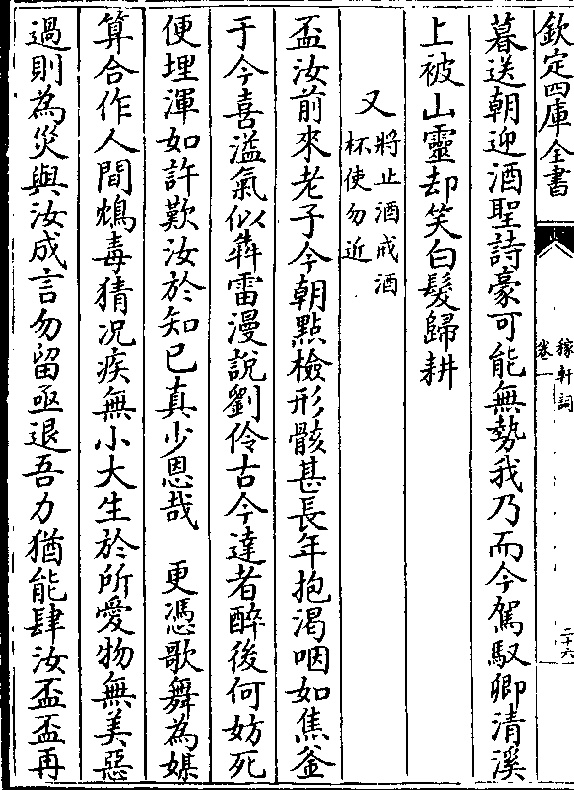 欽定四庫全書
稼軒詞
卷一
二十六
暮送朝迎酒聖詩豪可能無勢我乃而今駕馭卿清溪
上被山靈却笑白髮歸耕
又
將止酒戒酒
杯使勿近
盃汝前來老子今朝點檢形骸甚長年抱渴咽如焦釜
于今喜溢氣似犇雷漫說劉伶古今達者醉後何妨死
便埋渾如許歎汝於知已真少恩哉　更憑歌舞為媒
算合作人間鴆毒猜況疾無小大生於所愛物無美惡
過則為災與汝成言勿留亟退吾力猶能肆汝盃盃再